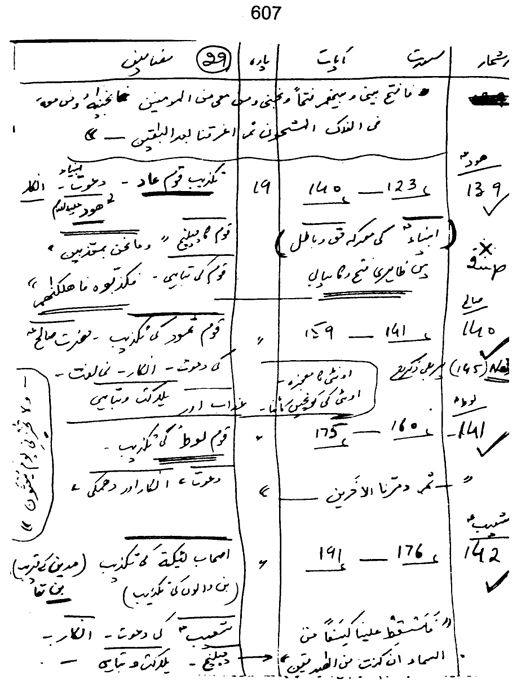 607
نمبر شمار سورت آیات پارہ 29 مضامین
فافتح بینی وبینہم فتحاً ونجنی ومن معی من المومنین فانجینٰہ ومن معہ
فی الفلک المشحون ثم اغرقنا بعد الباقین"
ہودؑ
139 123 — 140 19 تکذیب قوم عاد - دعوت - انکار
ہود علیہ السلام
(انبیاء کی معرکہ حق و باطل) قوم کا چیلنج "وما نحن بمعذبین"
میں ظاہری فتح و کامیابی قوم کی تباہی - فکذبوہ فاہلکنٰہم"
صالح
140 141 — 159 " قوم ثمود کی تکذیب - حضرت صالحؑ
Note (145) کی دعوت - انکار -
اونٹنی کا معجزہ -
اونٹنی کی کونچیں کاٹنا - عذاب اور ہلاکت و تباہی
لوطؑ
141 160 — 175 " قوم لوط کی تکذیب -
دعوت، انکار اور دھمکی،
"ثم دمرنا الآخرین"
ولا تخزنی یوم یبعثون"
شعیبؑ
142 176 — 191 " اصحاب لئیکۃ کی تکذیب (مدین کے قریب
(بن والوں کی تکذیب) بن تھا)
شعیبؑ کی دعوت - انکار -
"فاسقط علینا کسفاً من
السماء ان کنت من الصدقین" چیلنج - ہلاکت و تباہی -